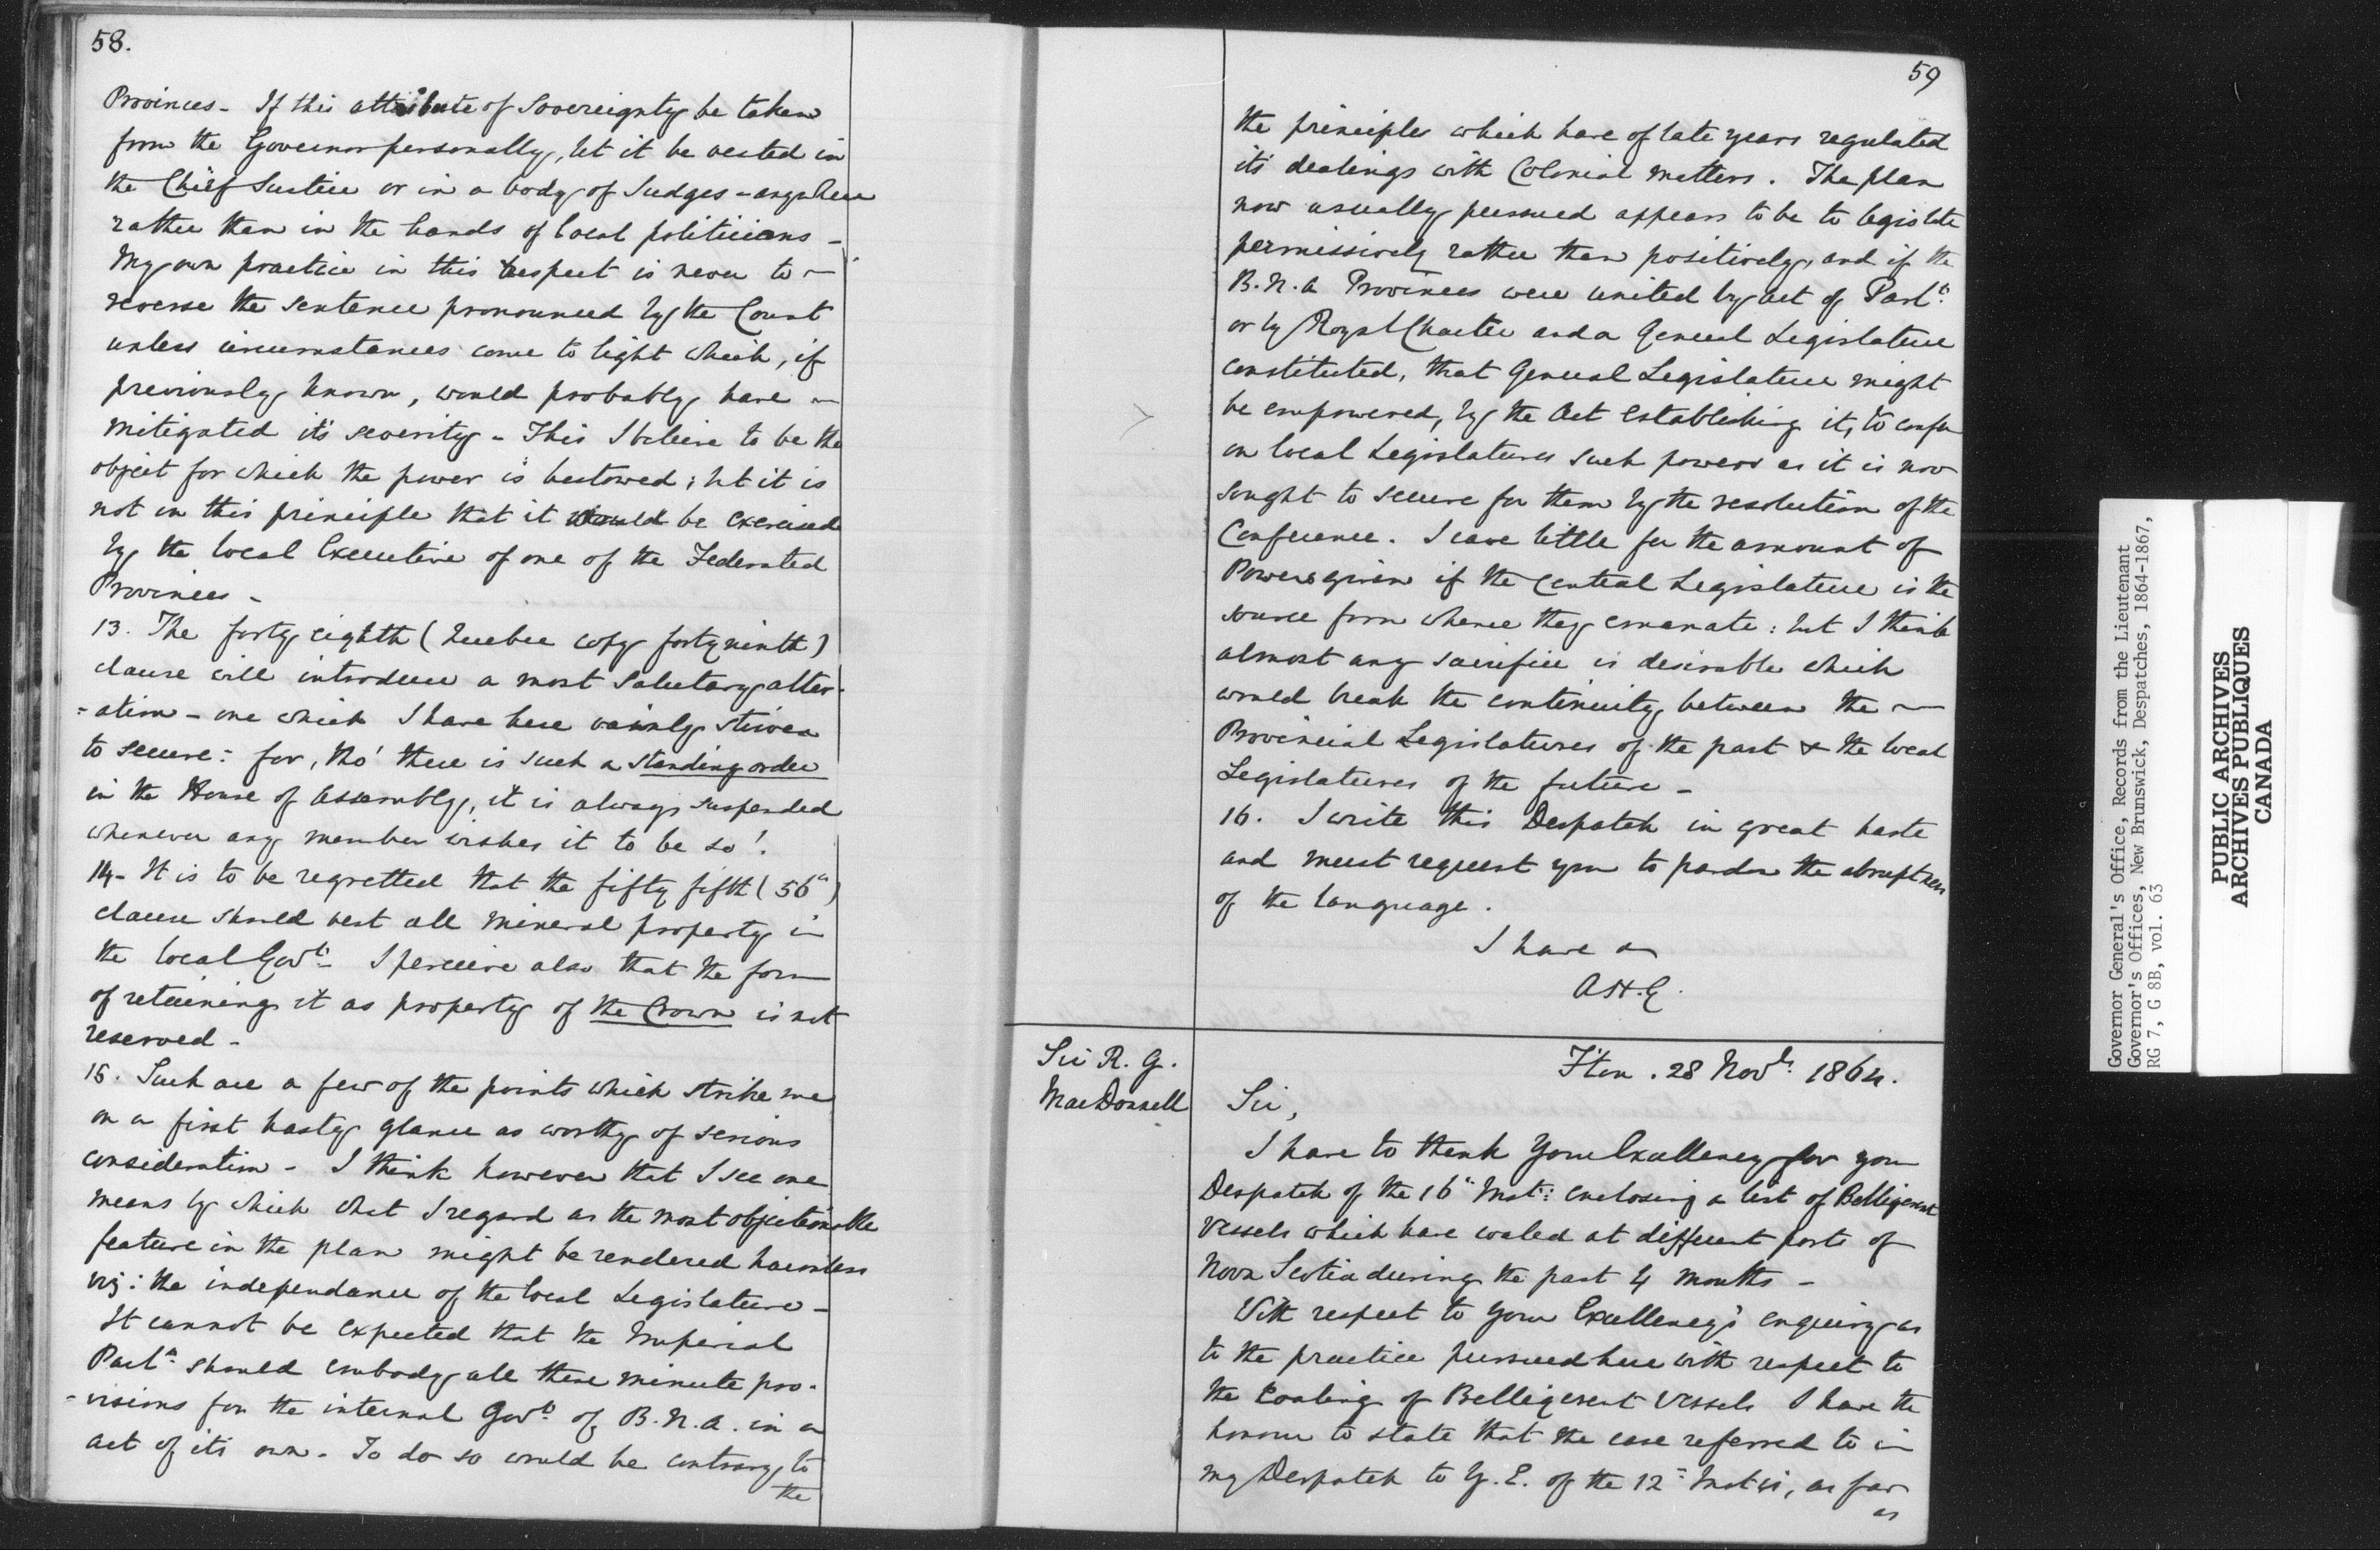 58.
Provinces - If this attribute of Sovereignty be taken
from the Governor personally, let it be vested in
the Chief Justice or in a body of Judges - anywhere
rather than in the hands of local politicians -
My own practice in this respect is never to
reverse the sentence pronounced by the Court
unless circumstances come to light which, if
previously known, would probably have
mitigated its severity - This I believe to be the
object for which the power is bestowed; but it is
not on this principle that it would be exercised
by the local Executive of one of the Federated
Provinces -
13. The forty eighth (Quebec copy forty ninth)
clause will introduce a most salutary alter-
=ation - one which I have here vainly striven
to secure: for, tho' there is such a standing order
in the House of Assembly, it is always suspended
whenever any member wishes it to be so!
14 - It is to be regretted that the fifty fifth (56th)
clause should vest all mineral property in
the local Govt. I perceive also that the form
of retaining it as property of the Crown is not
reserved -
15. Such are a few of the points which strike me
on a first hasty glance as worthy of serious
consideration - I think however that I see one
means by which what I regard as the most objectionable
feature in the plan might be rendered harmless
viz: the independance of the local Legislature -
It cannot be expected that the Imperial
Parlt. should embody all these minute pro-
-visions for the internal Govt. of B.N.A. in an
act of its own - To do so would be contrary to
the
59
the principles which have of late years regulated
its dealings with Colonial matters. The plan
now usually pursued appears to be to legislate
permissively rather than positively, and if the
B.N.A Provinces were united by act of Parlt.
or by Royal Charter and a General Legislature
constituted, that General Legislature might
be empowered, by the Act establishing it, to confer
on local Legislatures such powers as it is now
sought to secure for them by the resolution of the
Conference. I care little for the amount of
Powers given if the Central Legislature is the
source from whence they emanate: but I think
almost any sacrifice is desirable which
would break the continuity between the
Provincial Legislatures of the past & the local
Legislatures of the future -
16. I write this Despatch in great haste
and must request you to pardon the abruptness
of the language.
I have &c
A.H.G.
Sir R. G.
MacDonnell
F'ton. 28 Novr. 1864.
Sir,
I have to thank Your Excellency for your
Despatch of the 16th Inst: enclosing a list of Belligerent
Vessels which have coaled at different ports of
Nova Scotia during the past 4 months -
With respect to Your Excellency's enquiry as
to the practice pursued here with respect to
the Coaling of Belligerent Vessels I have the
honour to state that the case referred to in
my Despatch to Y.E. of the 12th Inst is, as far
as
Governor General's Office, Records from the Lieutenant
Governor's Offices, New Brunswick, Despatches, 1864-1867,
RG 7, G 8B, vol. 63
PUBLIC ARCHIVES
ARCHIVES PUBLIQUES
CANADA